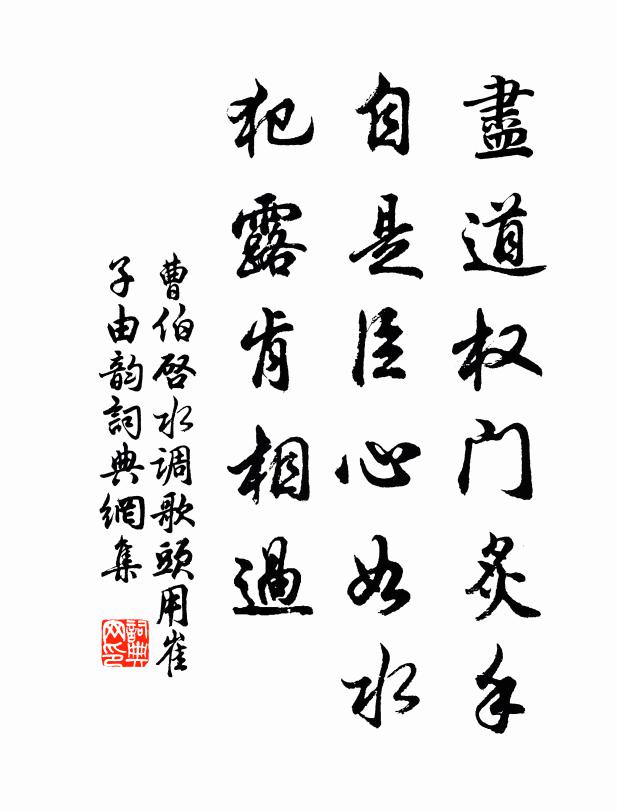 盡道权门炙手
自是臣心如水
犯露肯相過
曹伯啓水调歌頭用崔
子由韵詞典網集
詞典